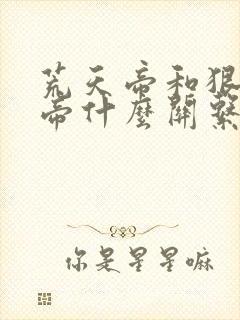 荒天帝和狠
帝什麼關繫
你是星星嘛